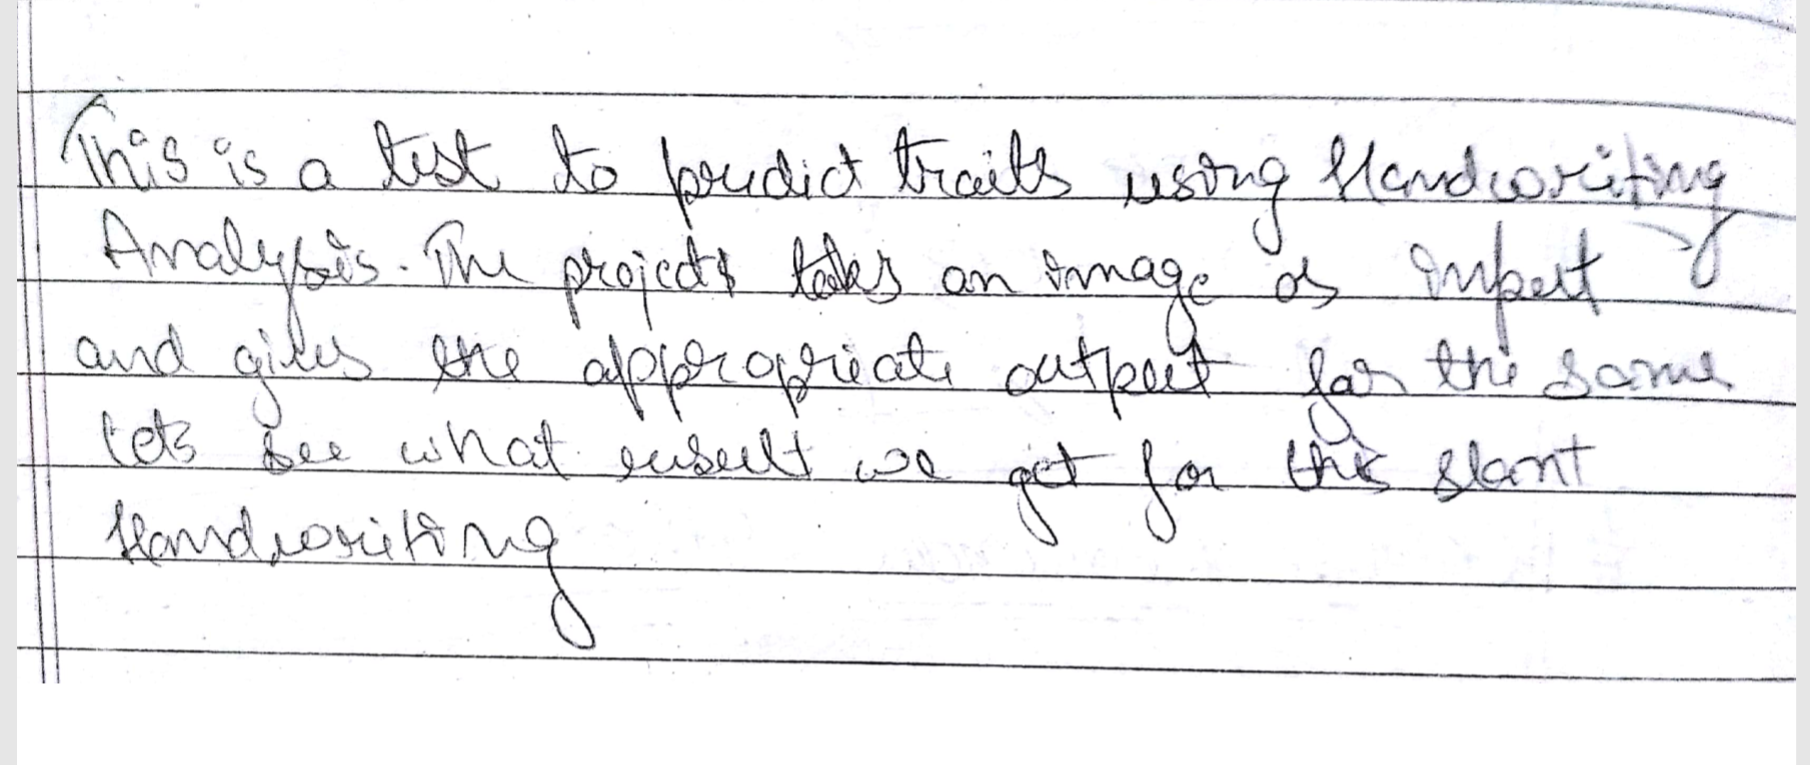 This is a test to predict traits using Handwriting
Analysis. The projects takes an image as input
and gives the appropriate output for the same
lets see what result we get for this slant
Handwriting